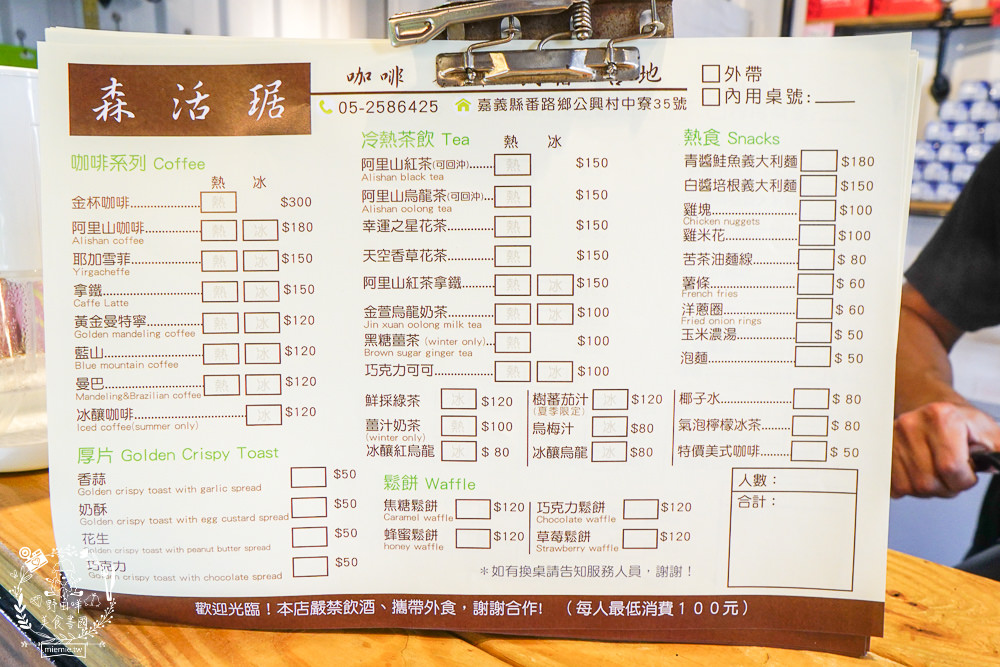 森活琚
咖啡
地
05-2586425 嘉義縣番路鄉公興村中寮35號
外帶
內用桌號：
咖啡系列 Coffee
熱 冰
金杯咖啡 熱 $300
阿里山咖啡 熱 冰 $180
Alishan coffee
耶加雪菲 熱 冰 $150
Yirgacheffe
拿鐵 熱 冰 $150
Caffe Latte
黃金曼特寧 熱 冰 $120
Golden mandeling coffee
藍山 熱 冰 $120
Blue mountain coffee
曼巴 熱 冰 $120
Mandeling&Brazilian coffee
冰釀咖啡 冰 $120
Iced coffee(summer only)
厚片 Golden Crispy Toast
香蒜 $50
Golden crispy toast with garlic spread
奶酥 $50
Golden crispy toast with egg custard spread
花生 $50
Golden crispy toast with peanut butter spread
巧克力 $50
Golden crispy toast with chocolate spread
冷熱茶飲 Tea
熱 冰
阿里山紅茶(可回沖) 熱 $150
Alishan black tea
阿里山烏龍茶(可回沖) 熱 $150
Alishan oolong tea
幸運之星花茶 熱 $150
天空香草花茶 熱 $150
阿里山紅茶拿鐵 熱 冰 $150
金萱烏龍奶茶 熱 冰 $100
Jin xuan oolong milk tea
黑糖薑茶 (winter only) 熱 $100
Brown sugar ginger tea
巧克力可可 熱 冰 $100
鮮採綠茶 冰 $120
薑汁奶茶 熱 $100
(winter only)
冰釀紅烏龍 冰 $80
樹蕃茄汁 冰 $120
(夏季限定)
烏梅汁 冰 $80
冰釀烏龍 冰 $80
鬆餅 Waffle
焦糖鬆餅 $120
Caramel waffle
蜂蜜鬆餅 $120
honey waffle
巧克力鬆餅 $120
Chocolate waffle
草莓鬆餅 $120
Strawberry waffle
熱食 Snacks
青醬鮭魚義大利麵 $180
白醬培根義大利麵 $150
雞塊 $100
Chicken nuggets
雞米花 $100
苦茶油麵線 $80
薯條 $60
French fries
洋蔥圈 $60
Fried onion rings
玉米濃湯 $50
泡麵 $50
椰子水 $80
氣泡檸檬冰茶 $80
特價美式咖啡 $50
人數：
合計：
＊如有換桌請告知服務人員，謝謝！
歡迎光臨！本店嚴禁飲酒、攜帶外食，謝謝合作! （每人最低消費100元）
美食樂園
miemie.tw